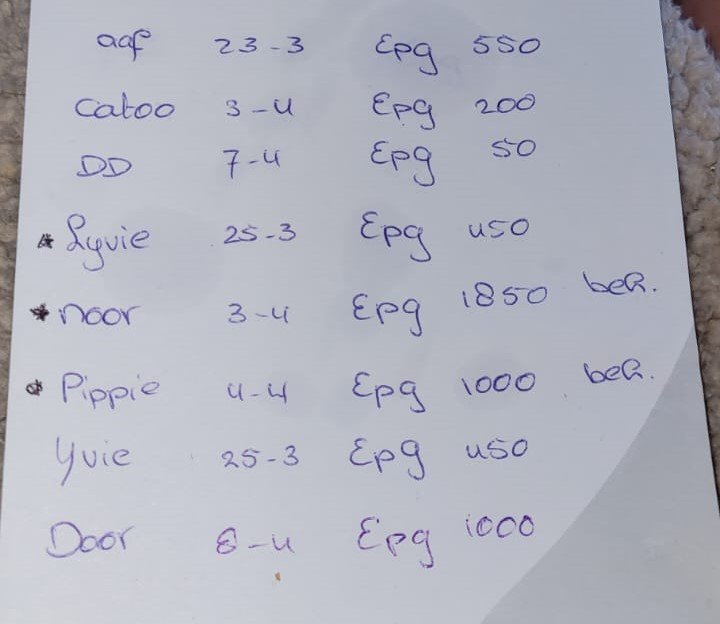 aaf 23-3 Epg 550
Catoo 3-4 Epg 200
DD 7-4 Epg 50
* Lyvie 25-3 Epg 450
* noor 3-4 Epg 1850 beh.
* Pippie 4-4 Epg 1000 beh.
Yvie 25-3 Epg 450
Door 6-4 Epg 1000